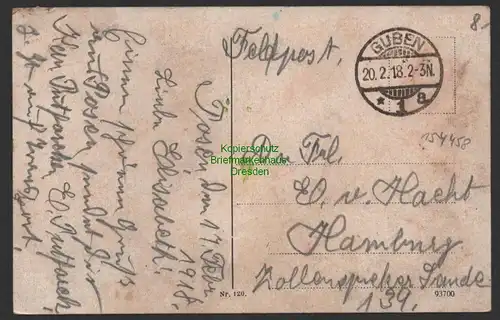 8.-
Feldpost.
GUBEN
20.2.18.2-3N.
* 1 a
154458
Posen, den 17. Febr.
1918.
Liebe Elisabeth!
Einen schönen Gruß
aus Posen sendet Dir
Kopierschutz
Briefmarkenhaus
Dresden
An Frl.
E. v. Hacht
Hamburg
Zollenspieker Lande
139.
Nr. 120.
93700